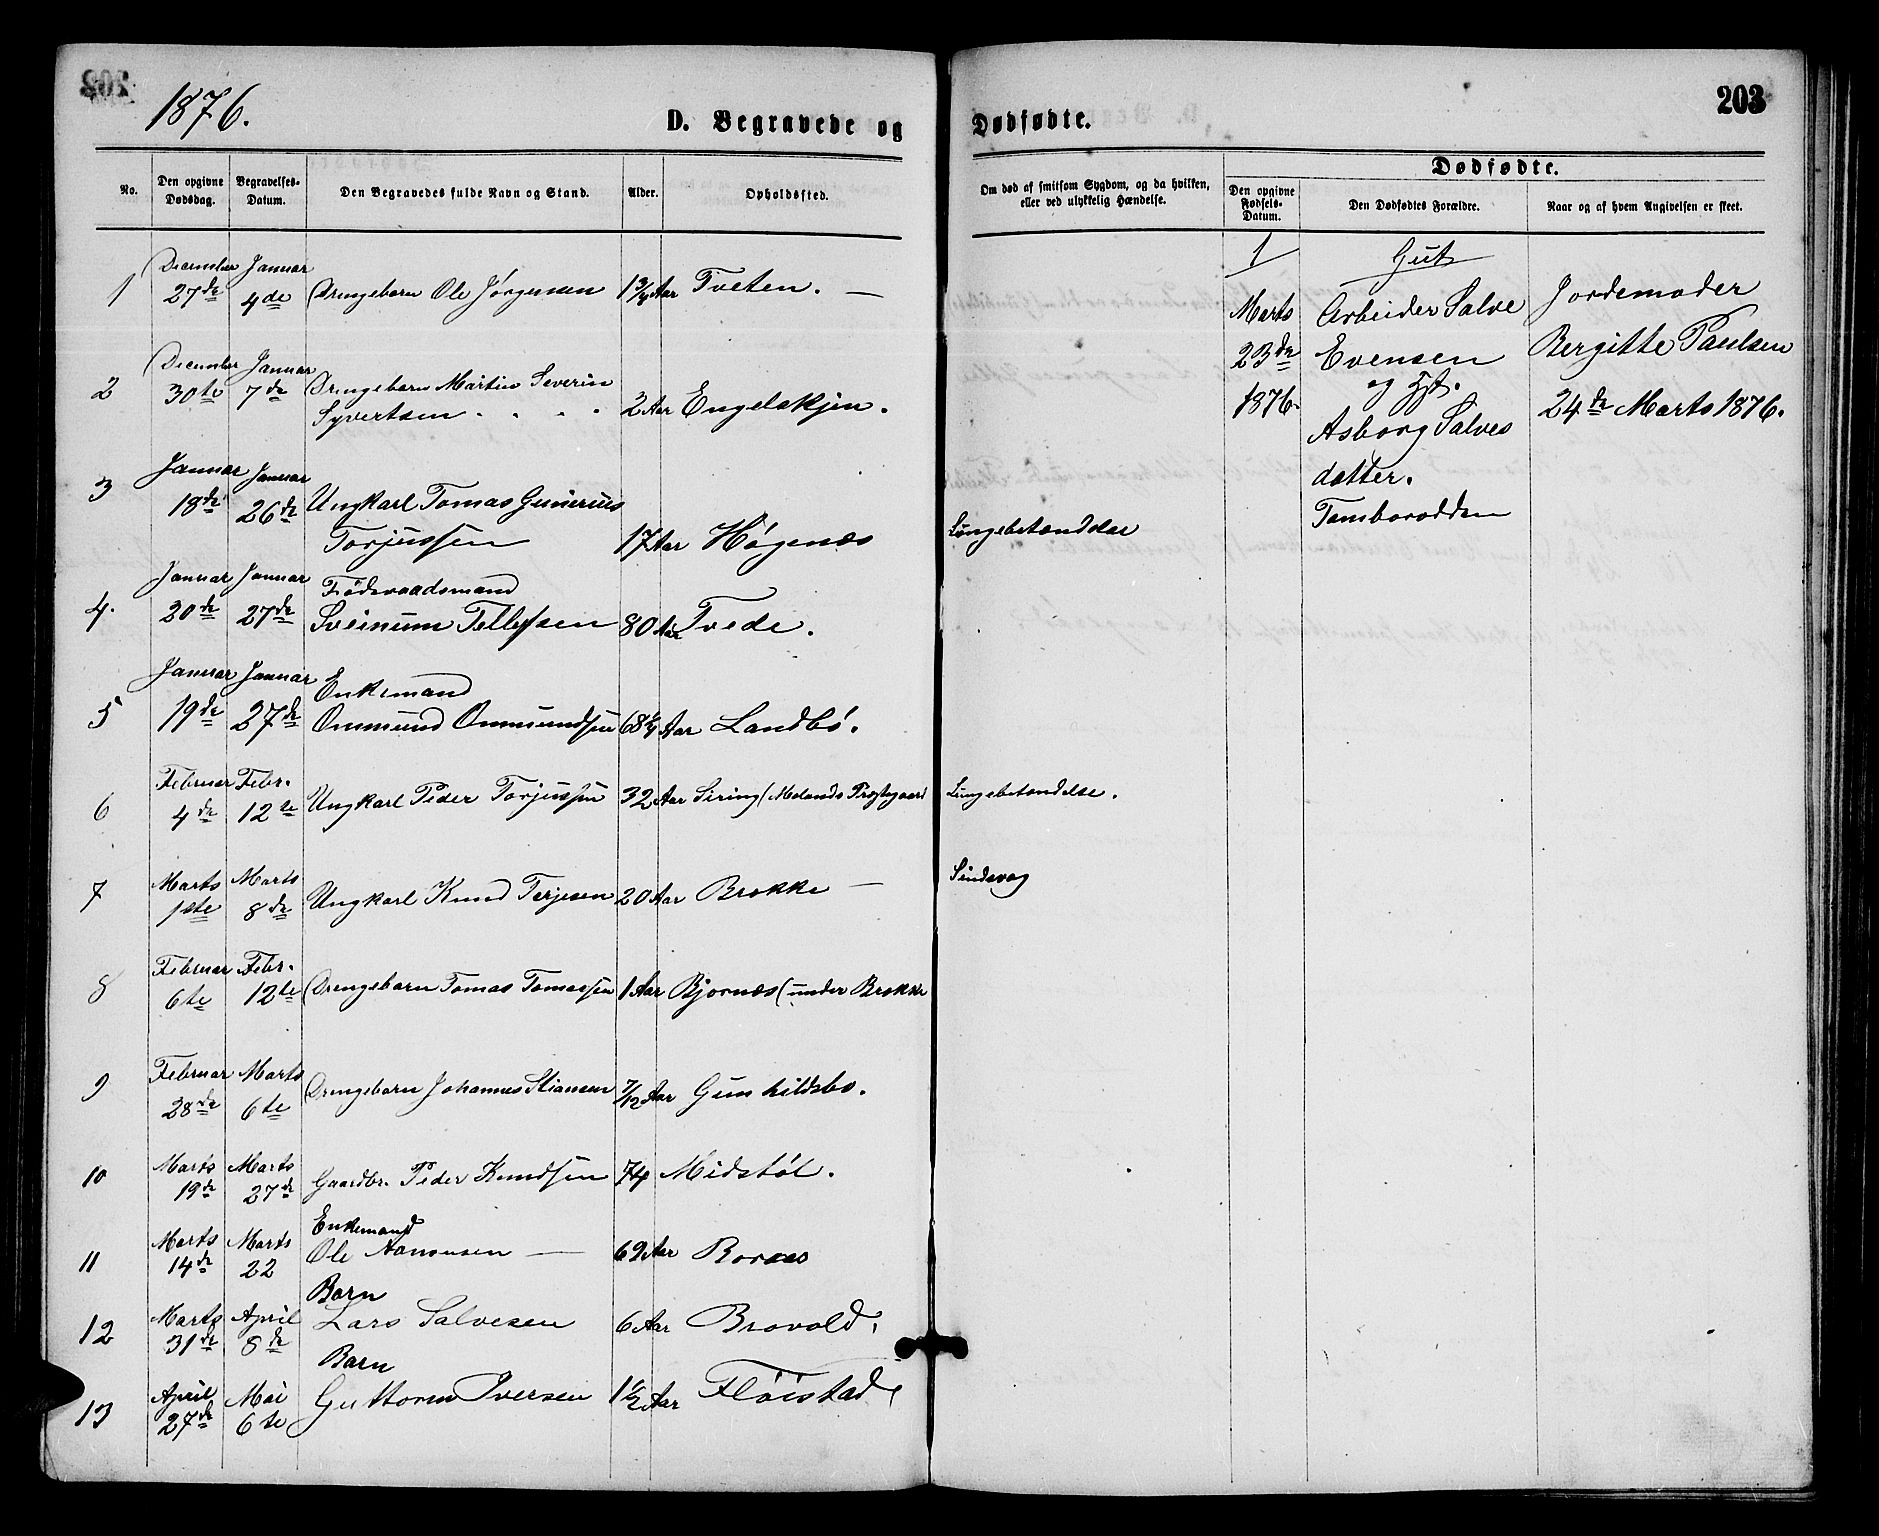 1876.
D. Begravede og Dødfødte.
203
No.
Den opgivne Dødsdag.
Begravelses-Datum.
Den Begravedes fulde Navn og Stand.
Alder.
Opholdssted.
Om død af smitsom Sygdom, og da hvilken, eller ved ulykkelig Hændelse.
Dødfødte.
Den opgivne Fødsels-Datum.
Den Dødfødtes Forældre.
Naar og af hvem Angivelsen er skeet.
1 December 27de Januar 4de Drengebarn Ole Jørgensen 1 3/4 Aar Tveten. —
2 December 30te Januar 7de Drengebarn Martin Severin
Syvertsen 2 Aar Engelskjøn.
3 Januar 18de Januar 26de Ungkarl Tomas Gunerius
Torjussen 17 Aar Høgenæs Lungebetændelse
4. Januar 20de Januar 27de Føderaadsmand
Sveinum Tellefsen 80 Aar Tvede.
5 Januar 19de Januar 27de Enkemand
Ommund Ommundsen 68 1/4 Aar Landbø.
6 Februar 4de Febr. 12te Ungkarl Peder Torjussen 32 Aar Siring (Molands Præstegaard Lungebetændelse.
7 Marts 1ste Marts 8de Ungkarl Knud Terjesen 20 Aar Brække —
8 Februar 6te Febr. 12te Drengebarn Tomas Tomassen 1 Aar Bjornæs (under Brække
9 Februar 28de Marts 6te Drengebarn Johannes Stiansen 7/12 Aar Gunhildsbo.
10 Marts 19de Marts 27de Gaardbr. Peder Knudsen 74 Midstøl.
11 Marts 14de Marts 22 Enkemand
Ole Aanonsen — 69 Aar
12 Marts 31de April 8de Barn
Lars Salvesen 6 Aar Brovold.
13 April 27de Mai 6te Barn
Guttorm Iversen 1 1/2 Aar Fløistad
1
Gut
Marts
23de
1876.
Arbeider Salve
Evensen
og
Asborg Salves
datter.
Tamborodden
Jordemoder
Bergitte Paulsen
24de Marts 1876.